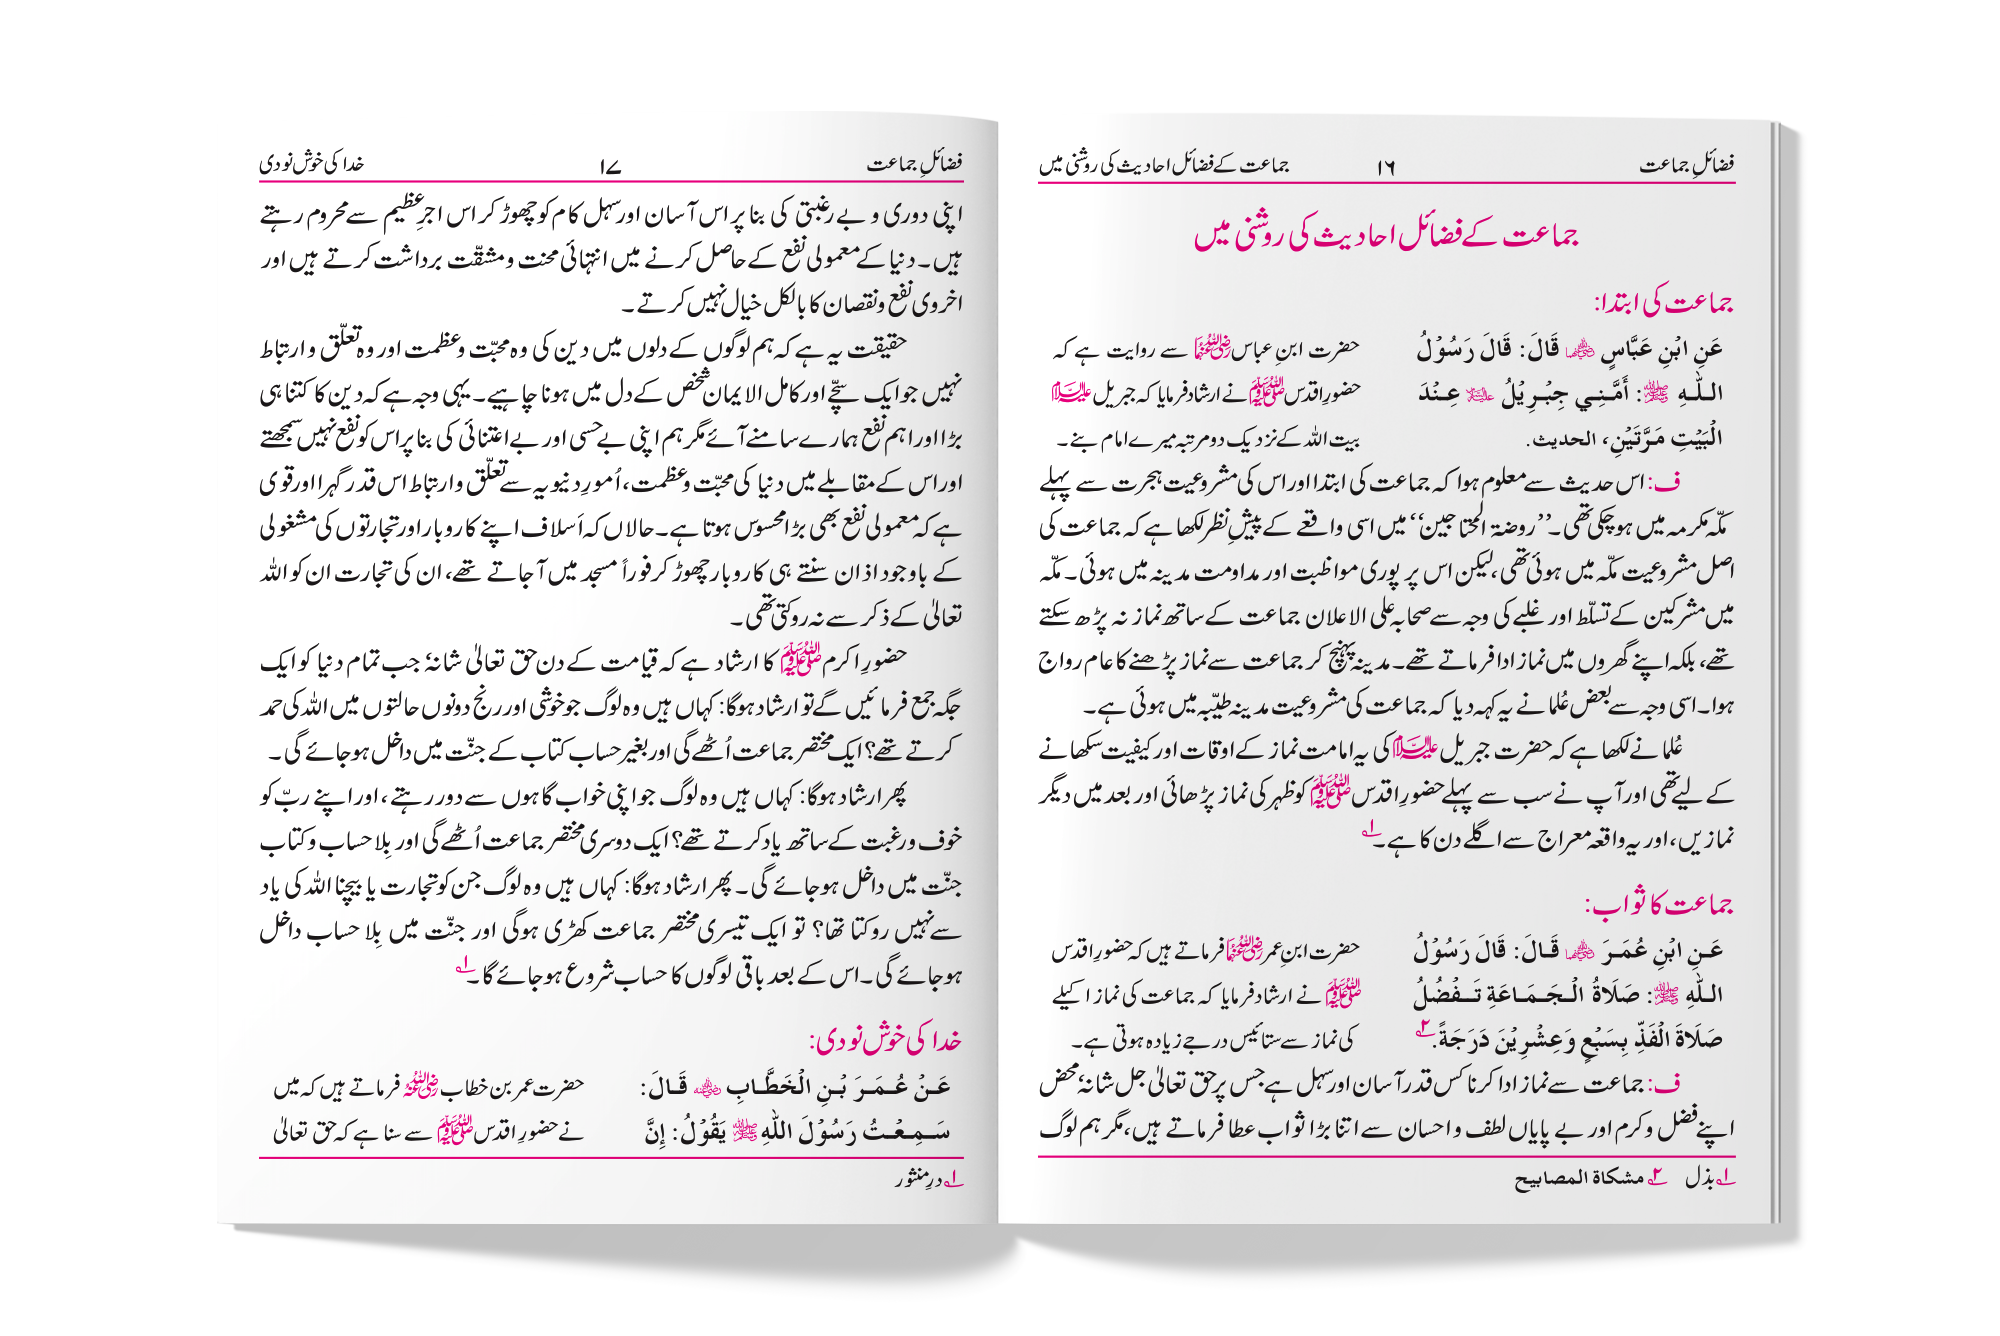 فضائلِ جماعت ۱۶ جماعت کے فضائل احادیث کی روشنی میں
جماعت کے فضائل احادیث کی روشنی میں
جماعت کی ابتدا:
عَنِ ابْنِ عَبَّاسٍ رضی اللہ عنہما قَالَ: قَالَ رَسُوْلُ
اللّٰہِ ﷺ: أَمَّنِي جِبْرِيْلُ علیہ السلام عِنْدَ
الْبَيْتِ مَرَّتَيْنِ، الحدیث.
حضرت ابنِ عباس رضی اللہ عنہما سے روایت ہے کہ
حضورِ اقدس ﷺ نے ارشاد فرمایا کہ جبریل علیہ السلام
بیت اللہ کے نزدیک دو مرتبہ میرے امام بنے۔
ف: اس حدیث سے معلوم ہوا کہ جماعت کی ابتدا اور اس کی مشروعیت ہجرت سے پہلے
مکّہ مکرمہ میں ہو چکی تھی۔ ’’روضۃ المحتاجین‘‘ میں اسی واقعے کے پیشِ نظر لکھا ہے کہ جماعت کی
اصل مشروعیت مکّہ میں ہوئی تھی، لیکن اس پر پوری مواظبت اور مداومت مدینہ میں ہوئی۔ مکّہ
میں مشرکین کے تسلّط اور غلبے کی وجہ سے صحابہ علی الاعلان جماعت کے ساتھ نماز نہ پڑھ سکتے
تھے، بلکہ اپنے گھروں میں نماز ادا فرماتے تھے۔ مدینہ پہنچ کر جماعت سے نماز پڑھنے کا عام رواج
ہوا۔ اسی وجہ سے بعض عُلما نے یہ کہہ دیا کہ جماعت کی مشروعیت مدینہ طیّبہ میں ہوئی ہے۔
عُلما نے لکھا ہے کہ حضرت جبریل علیہ السلام کی یہ امامت نماز کے اوقات اور کیفیت سکھانے
کے لیے تھی اور آپ نے سب سے پہلے حضورِ اقدس ﷺ کو ظہر کی نماز پڑھائی اور بعد میں دیگر
نمازیں، اور یہ واقعہ معراج سے اگلے دن کا ہے۔؂۱
جماعت کا ثواب:
عَنِ ابْنِ عُمَرَ رضی اللہ عنہما قَالَ: قَالَ رَسُوْلُ
اللّٰہِ ﷺ: صَلَاةُ الْجَمَاعَةِ تَفْضُلُ
صَلَاةَ الْفَذِّ بِسَبْعٍ وَعِشْرِيْنَ دَرَجَةً.؂۲
حضرت ابنِ عمر رضی اللہ عنہما فرماتے ہیں کہ حضورِ اقدس
ﷺ نے ارشاد فرمایا کہ جماعت کی نماز اکیلے
کی نماز سے ستائیس درجے زیادہ ہوتی ہے۔
ف: جماعت سے نماز ادا کرنا کس قدر آسان اور سہل ہے جس پر حق تعالیٰ جل شانہٗ محض
اپنے فضل و کرم اور بے پایاں لطف و احسان سے اتنا بڑا ثواب عطا فرماتے ہیں، مگر ہم لوگ
؂۱ بذل ؂۲ مشکاة المصابیح
فضائلِ جماعت ۱۷ خدا کی خوش نودی
اپنی دوری و بے رغبتی کی بنا پر اس آسان اور سہل کام کو چھوڑ کر اس اجرِ عظیم سے محروم رہتے
ہیں۔ دنیا کے معمولی نفع کے حاصل کرنے میں انتہائی محنت و مشقّت برداشت کرتے ہیں اور
اخروی نفع و نقصان کا بالکل خیال نہیں کرتے۔
حقیقت یہ ہے کہ ہم لوگوں کے دلوں میں دین کی وہ محبّت و عظمت اور وہ تعلّق و ارتباط
نہیں جو ایک سچّے اور کامل الایمان شخص کے دل میں ہونا چاہیے۔ یہی وجہ ہے کہ دین کا کتنا ہی
بڑا اور اہم نفع ہمارے سامنے آئے مگر ہم اپنی بے حسی اور بے اعتنائی کی بنا پر اس کو نفع نہیں سمجھتے
اور اس کے مقابلے میں دنیا کی محبّت و عظمت، اُمورِ دنیویہ سے تعلّق و ارتباط اس قدر گہرا اور قوی
ہے کہ معمولی نفع بھی بڑا محسوس ہوتا ہے۔ حالاں کہ اَسلاف اپنے کاروبار اور تجارتوں کی مشغولی
کے باوجود اذان سنتے ہی کاروبار چھوڑ کر فوراً مسجد میں آ جاتے تھے، ان کی تجارت ان کو اللہ
تعالیٰ کے ذکر سے نہ روکتی تھی۔
حضورِ اکرم ﷺ کا ارشاد ہے کہ قیامت کے دن حق تعالیٰ شانہٗ جب تمام دنیا کو ایک
جگہ جمع فرمائیں گے تو ارشاد ہوگا: کہاں ہیں وہ لوگ جو خوشی اور رنج دونوں حالتوں میں اللہ کی حمد
کرتے تھے؟ ایک مختصر جماعت اُٹھے گی اور بغیر حساب کتاب کے جنّت میں داخل ہو جائے گی۔
پھر ارشاد ہوگا: کہاں ہیں وہ لوگ جو اپنی خواب گاہوں سے دور رہتے، اور اپنے ربّ کو
خوف و رغبت کے ساتھ یاد کرتے تھے؟ ایک دوسری مختصر جماعت اُٹھے گی اور بِلا حساب و کتاب
جنّت میں داخل ہو جائے گی۔ پھر ارشاد ہوگا: کہاں ہیں وہ لوگ جن کو تجارت یا بیچنا اللہ کی یاد
سے نہیں روکتا تھا؟ تو ایک تیسری مختصر جماعت کھڑی ہوگی اور جنّت میں بِلا حساب داخل
ہو جائے گی۔ اس کے بعد باقی لوگوں کا حساب شروع ہو جائے گا۔؂۱
خدا کی خوش نودی:
عَنْ عُمَرَ بْنِ الْخَطَّابِ رضی اللہ عنہ قَالَ:
سَمِعْتُ رَسُوْلَ اللّٰہِ ﷺ يَقُوْلُ: إِنَّ
حضرت عمر بن خطاب رضی اللہ عنہ فرماتے ہیں کہ میں
نے حضورِ اقدس ﷺ سے سنا ہے کہ حق تعالیٰ
؂۱ درِ منثور